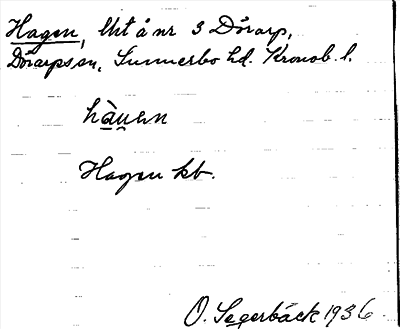 Hagen, Utå nr 3 Dörarp,
Dörarps sn, Sunnerbo hd. Kronob. l.
Hagen kb.
O. Segerbäck 1936